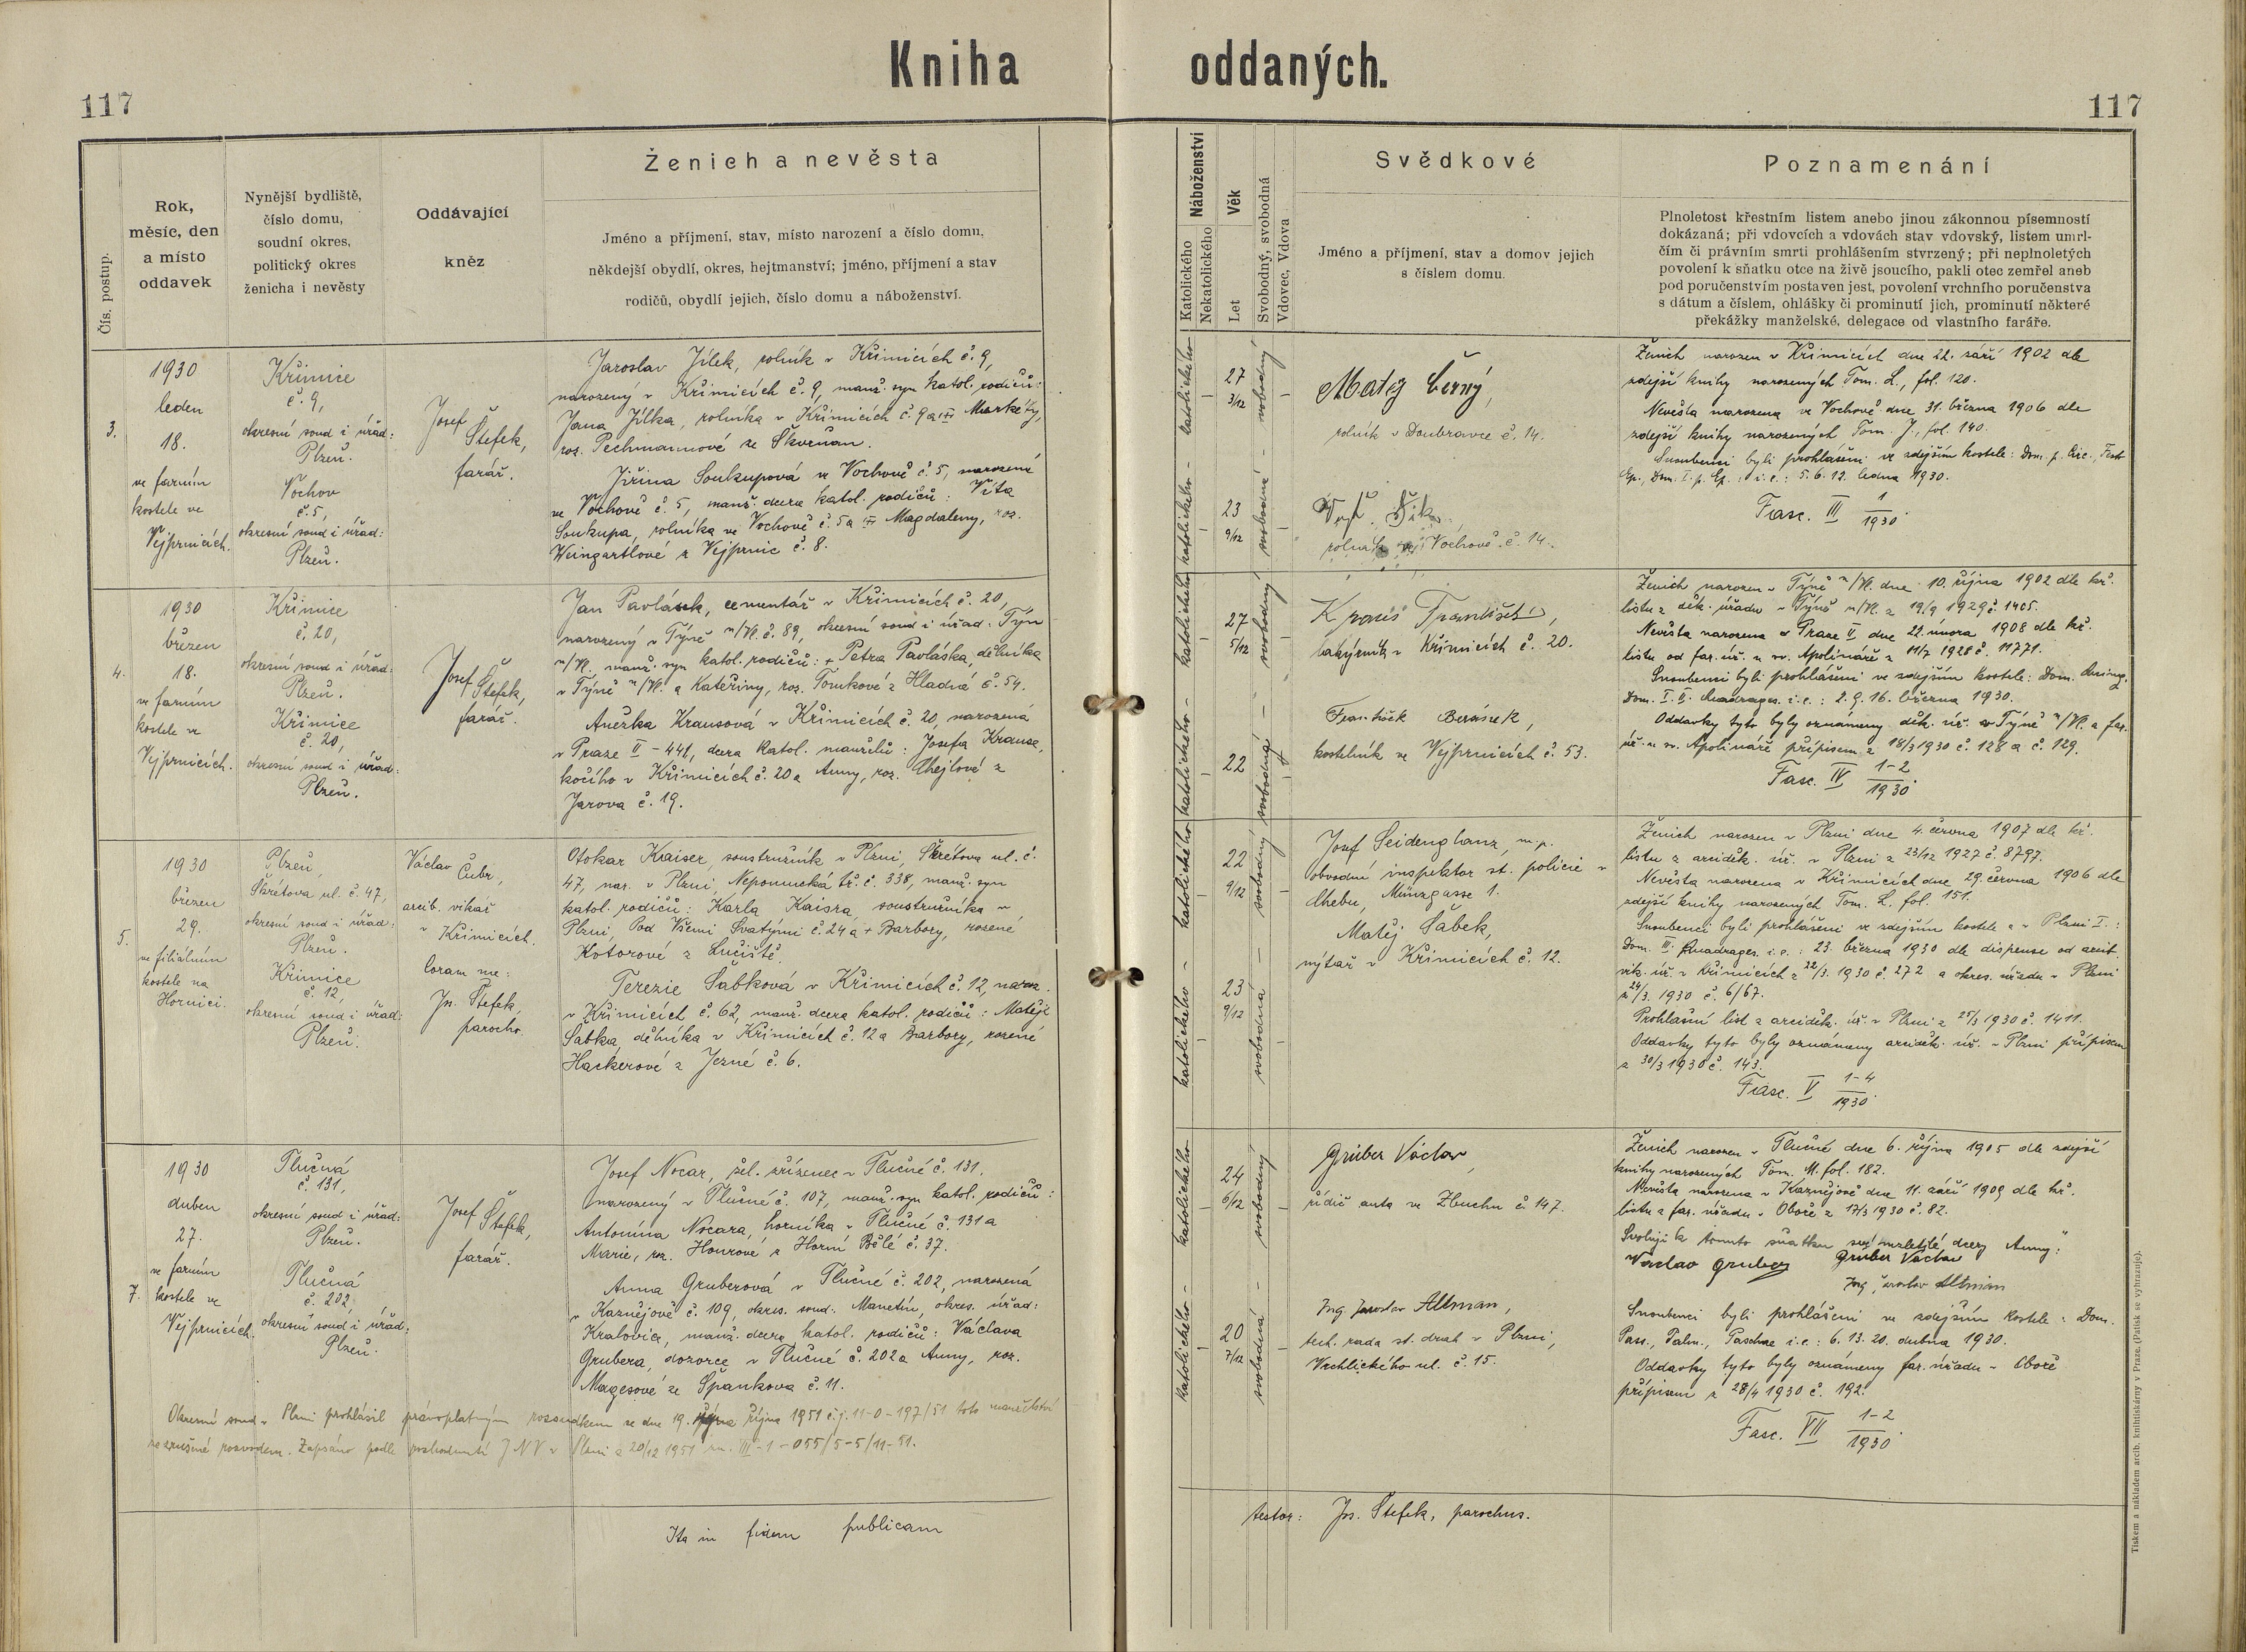 Kniha oddaných.
117
117
Čís. postup.
Rok,
měsíc, den
a místo
oddavek
Nynější bydliště,
číslo domu,
soudní okres,
politický okres
ženicha i nevěsty
Oddávající
kněz
Ženich a nevěsta
Jméno a příjmení, stav, místo narození a číslo domu,
někdejší obydlí, okres, hejtmanství; jméno, příjmení a stav
rodičů, obydlí jejich, číslo domu a náboženství.
Náboženství
Katolického
Nekatolického
Věk
Let
Svobodný, svobodná
Vdovec, Vdova
Svědkové
Jméno a příjmení, stav a domov jejich
s číslem domu.
Poznamenání
Plnoletost křestním listem anebo jinou zákonnou písemností
dokázaná; při vdovcích a vdovách stav vdovský, listem umrl-
čím či právním smrti prohlášením stvrzený; při neplnoletých
povolení k sňatku otce na živě jsoucího, pakli otec zemřel aneb
pod poručenstvím postaven jest, povolení vrchního poručenstva
s dátum a číslem, ohlášky či prominutí jich, prominutí některé
překážky manželské, delegace od vlastního faráře.
3.
1930
leden
18.
ve farním
kostele ve
Vejprnicích.
Křimice
č. 9,
okresní soud i úřad:
Plzeň.
Vochov
č. 5,
okresní soud i úřad:
Plzeň.
Josef
Štefek,
farář.
Jaroslav Jílek, rolník v Křimicích č. 9,
narozený v Křimicích č. 9, manž. syn katol. rodičů:
Jana Jílka, rolníka v Křimicích č. 9 a Markéty,
roz. Pechmannové ze Skvrňan.
Jiřina Soukupová ve Vochově č. 5, narozená
ve Vochově č. 5, manž. dcera katol. rodičů: Víta
Soukupa, rolníka ve Vochově č. 5 a Magdaleny, roz.
Weingartlové z Vejprnic č. 8.
katolického
27
3/12
svobodný
katolického
23
9/12
svobodná
Matěj Černý,
rolník v Doubravce č. 14.
rolník ve Vochově č. 14.
Ženich narozen v Křimicích dne 22. září 1902 dle
zdejší knihy narozených Tom. L., fol. 120.
Nevěsta narozena ve Vochově dne 31. března 1906 dle
zdejší knihy narozených Tom. J., fol. 140.
Snoubenci byli prohlášeni ve zdejším kostele: Dom. p. Circ., Fest
Ep., Dom. I. p. Ep.: i. e.: 5. 6. 12. ledna 1930.
Fasc. III 1/1930.
4.
1930
březen
18.
ve farním
kostele ve
Vejprnicích.
Křimice
č. 20,
okresní soud i úřad:
Plzeň.
Křimice
č. 20,
okresní soud i úřad:
Plzeň.
Josef
Štefek,
farář.
Jan Pavlásek, cementář v Křimicích č. 20,
narozený v Týně n/Vl. č. 89, okresní soud i úřad: Týn
n/Vl. manž. syn katol. rodičů: + Petra Pavláska, dělníka
v Týně n/Vl. a Kateřiny, roz. Tomkové z Hladné č. 54.
Anežka Krausová v Křimicích č. 20, narozená
v Praze II - 441, dcera katol. manželů: Josefa Krause,
kočího v Křimicích č. 20 a Anny, roz. Chejlové z
Jarova č. 19.
katolického
27
5/12
svobodný
katolického
22
svobodná
Kraus František,
v Křimicích č. 20.
František Beránek,
kostelník ve Vejprnicích č. 53.
Ženich narozen v Týně n/Vl. dne 10. října 1902 dle kř.
listu z děk. úřadu v Týně n/Vl. z 19/9 1929 č. 1405.
Nevěsta narozena v Praze II dne 22. února 1908 dle kř.
listu od far. úř. u sv. Apolináře z 11/7 1928 č. 11771.
Snoubenci byli prohlášeni ve zdejším kostele: Dom. Quinq.
Dom. I. II. Quadrages. i. e.: 2. 9. 16. března 1930.
Oddavky tyto byly oznámeny děk. úř. v Týně n/Vl. a far.
úř. u sv. Apolináře přípisem z 18/3 1930 č. 128 a č. 129.
Fasc. IV 1-2/1930.
5.
1930
březen
29.
ve filiálním
kostele na
Hornici.
Plzeň,
Škrétova ul. č. 47,
okresní soud i úřad:
Plzeň.
Křimice
č. 12,
okresní soud i úřad:
Plzeň.
Václav
Čubr,
arcib. vikář
v Křimicích.
Coram me:
Jos. Štefek,
parocho
Otokar Kaiser, soustružník v Plzni, Škrétova ul. č.
47, nar. v Plzni, Nepomucká tř. č. 338, manž. syn
katol. rodičů: Karla Kaisra, soustružníka v
Plzni, Pod Všemi Svatými č. 24 a + Barbory, rozené
Kotorové z Lučiště.
Terezie Sabková v Křimicích č. 12, naroz.
v Křimicích č. 62, manž. dcera katol. rodičů: Matěje
Sabka, dělníka v Křimicích č. 12 a Barbory, rozené
Hackerové z Jezné č. 6.
katolického
22
9/12
svobodný
katolického
23
9/12
svobodná
Josef Seidenglanz, m. p.
obvodní inspektor st. policie v
Chebu, Münzgasse 1.
Matěj Sabek,
nýtař v Křimicích č. 12.
Ženich narozen v Plzni dne 4. června 1907 dle kř.
listu z arciděk. úř. v Plzni z 23/12 1927 č. 8797.
Nevěsta narozena v Křimicích dne 29. června 1906 dle
zdejší knihy narozených Tom. L. fol. 151.
Snoubenci byli prohlášeni ve zdejším kostele a v Plzni I.:
Dom. III. Quadrages. i. e.: 23. března 1930 dle dispense od arcib.
vik. úř. v Křimicích z 22/3. 1930 č. 272 a okres. úřadu v Plzni
z 24/3. 1930 č. 6/67.
Prohlašní list z arciděk. úř. v Plzni z 25/3 1930 č. 1411.
Oddavky tyto byly oznámeny arciděk. úř. v Plzni přípisem
z 30/3 1930 č. 143.
Fasc. V 1-4/1930.
7.
1930
duben
27.
ve farním
kostele ve
Vejprnicích.
Tlučná
č. 131,
okresní soud i úřad:
Plzeň.
Tlučná
č. 202,
okresní soud i úřad:
Plzeň.
Josef Štefek,
farář.
Josef Nocar, žel. zřízenec v Tlučné č. 131,
narozený v Tlučné č. 107, manž. syn katol. rodičů:
Antonína Nocara, horníka v Tlučné č. 131 a
Marie, roz. Hourové z Horní Bělé č. 37.
Anna Gruberová v Tlučné č. 202, narozená
v Kaznějově č. 109, okres. soud: Manetín, okres. úřad:
Kralovice, manž. dcera katol. rodičů: Václava
Grubera, dozorce v Tlučné č. 202 a Anny, roz.
Magesové ze Špankova č. 11.
Okresní soud v Plzni prohlásil právoplatným rozsudkem ze dne 19. října 1951 č. j. 11-0-197/51 toto manželství
za zrušené rozvodem. Zapsáno podle rozhodnutí JNV v Plzni z 20/12 1951 zn. III-1-055/5-5/11-51.
katolického
24
6/12
svobodný
katolického
20
7/12
svobodná
Gruber Václav,
řidič auta ve Zbuchu č. 147.
Ing Jaroslav Altman,
tech. rada st. drah v Plzni,
Vrchlického ul. č. 15.
Ženich narozen v Tlučné dne 6. října 1905 dle zdejší
knihy narozených Tom. M. fol. 182.
Nevěsta narozena v Kaznějově dne 11. září 1909 dle kř.
listu z far. úřadu v Oboře z 17/3 1930 č. 82.
Svoluji k tomuto sňatku své nezletilé dcery Anny:"
Vaclav gruber Gruber Václav
Ing Jaroslav Altman
Snoubenci byli prohlášeni ve zdejším kostele: Dom.
Pass., Palm., Paschae i. e.: 6. 13. 20. dubna 1930.
Oddavky tyto byly oznámeny far. úřadu v Oboře
přípisem z 28/4 1930 č. 192.
Fasc. VII 1-2/1930.
Ita in fidem publicam
testor: Jos. Štefek, parochus.
Tiskem a nákladem arcib. knihtiskárny v Praze. (Patisk se vyhrazuje).